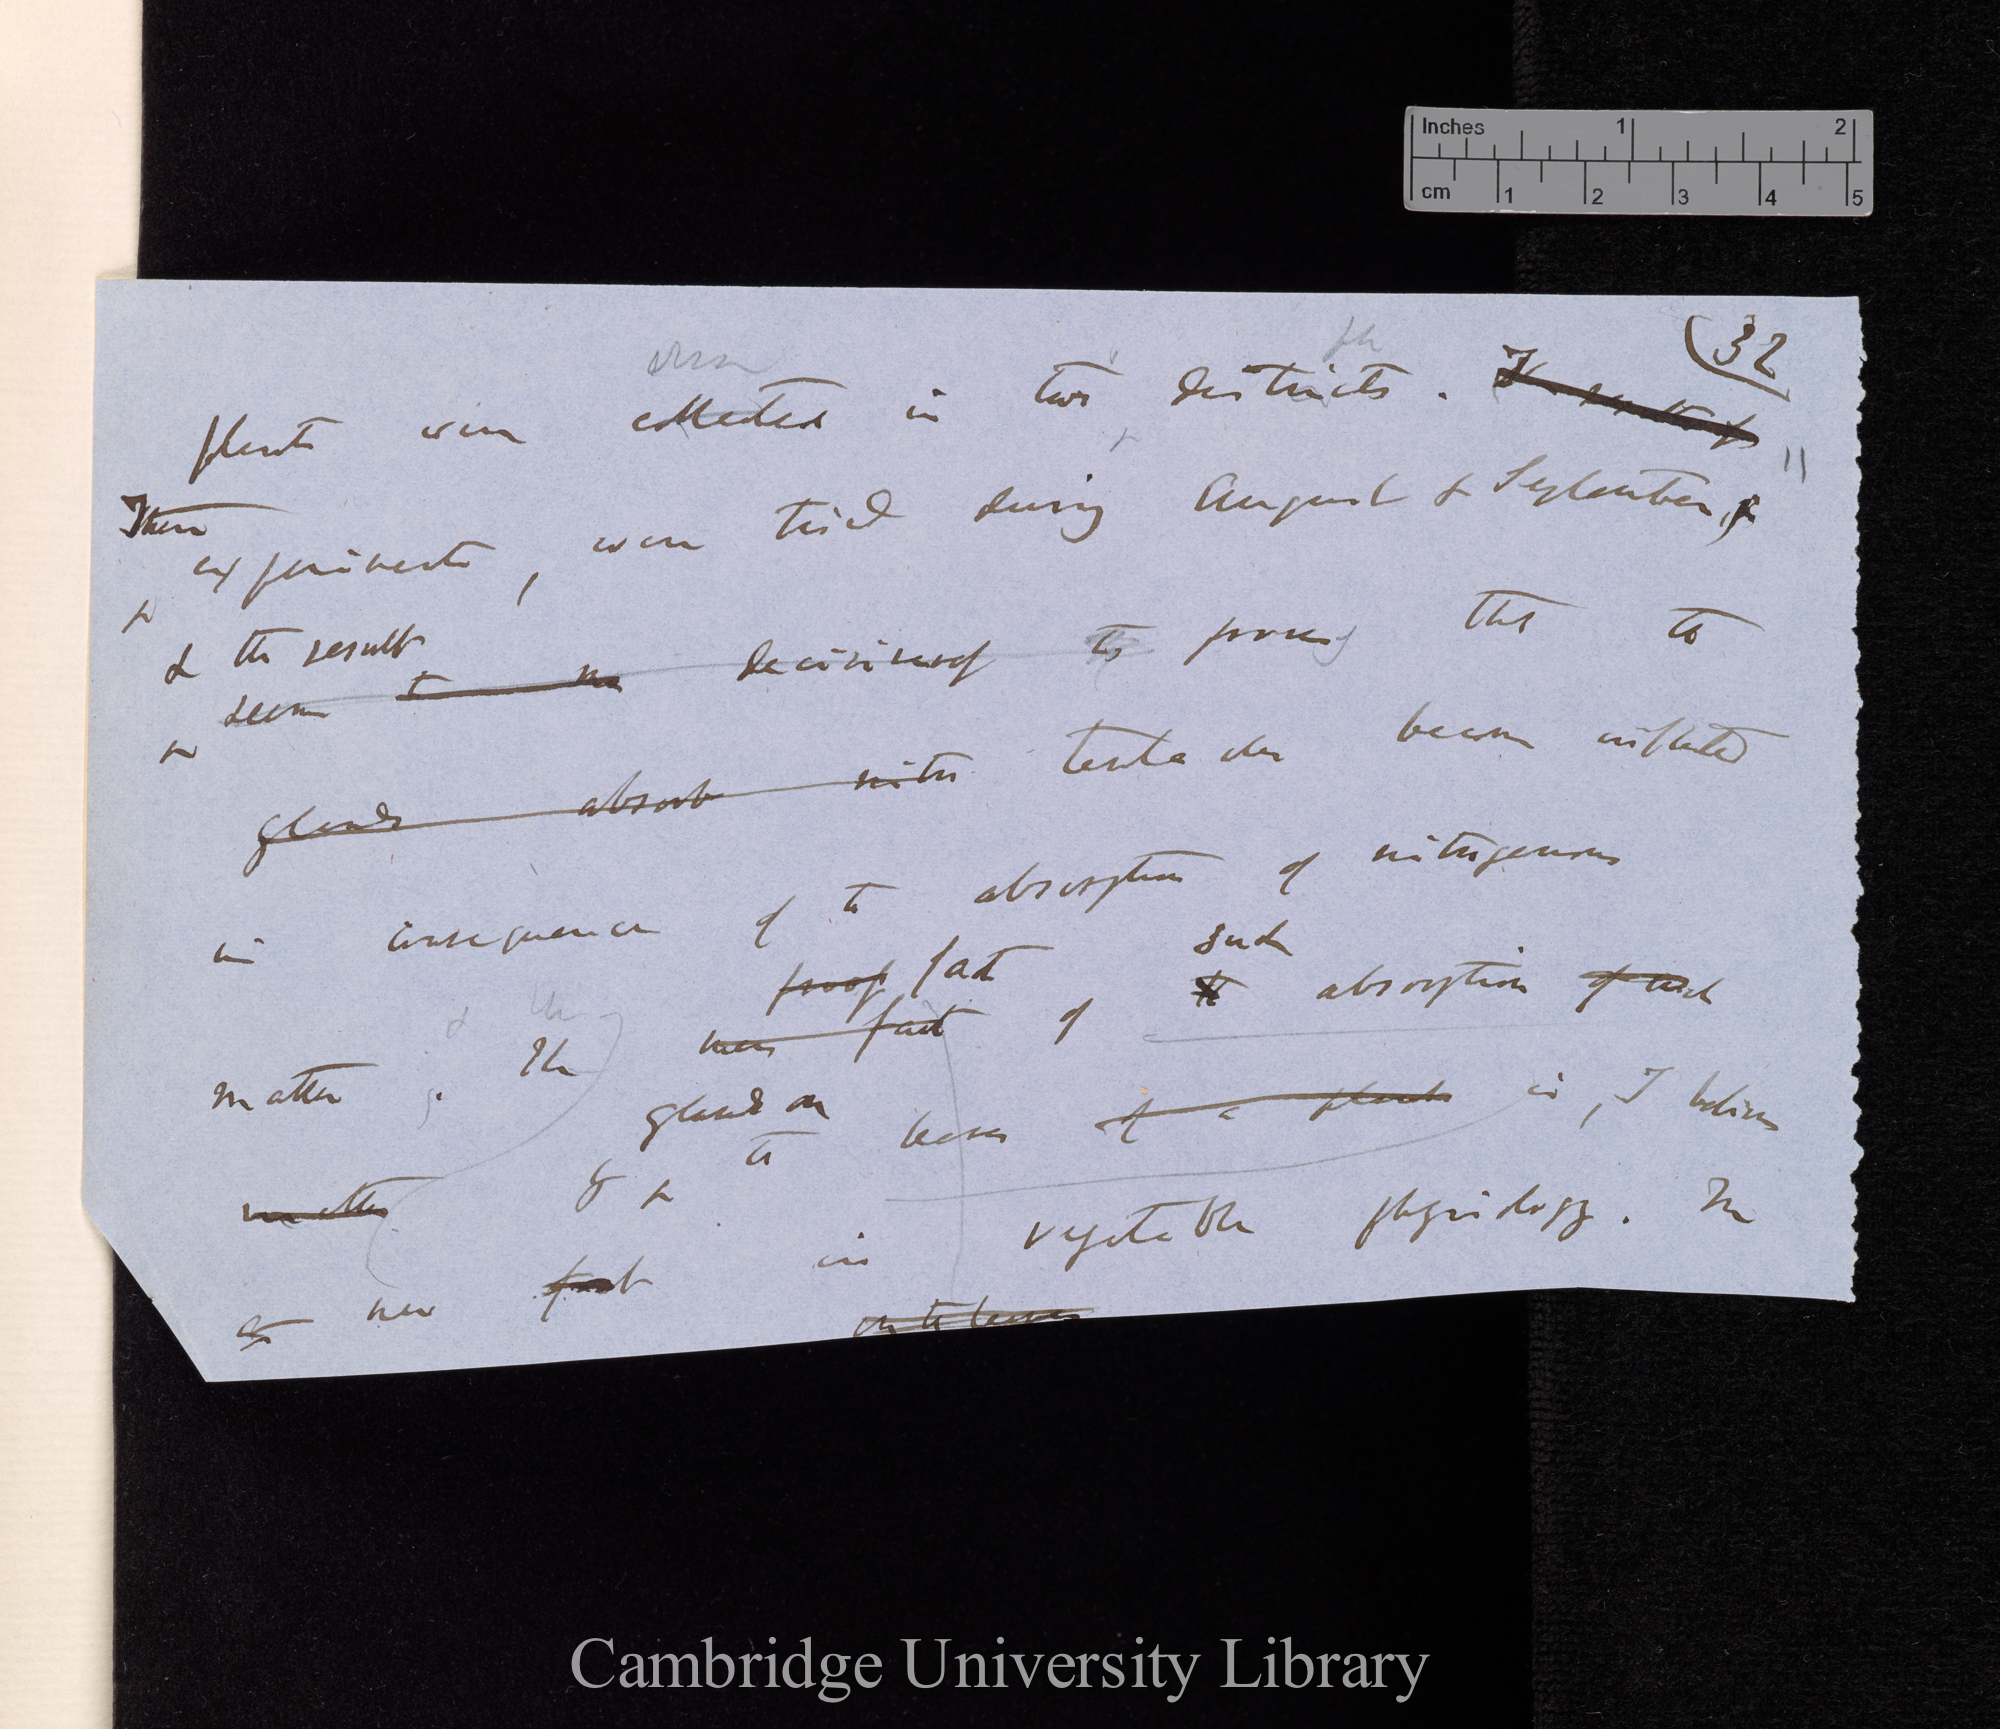 Inches 1 2
cm 1 2 3 4 5
(32
plants were collected in two districts.
These
experiments, were tried during August & September,
& the result
seem decisively to prove that the
glands absorb nitro tentacles become inflected
in consequence of the absorption of nitrogenous
proof fact such
matter. The new fact of the absorption of such
glands on
matter by the leaves of a plant is, I believe
a new fact in vegetable physiology. The
on the leaves
Cambridge University Library